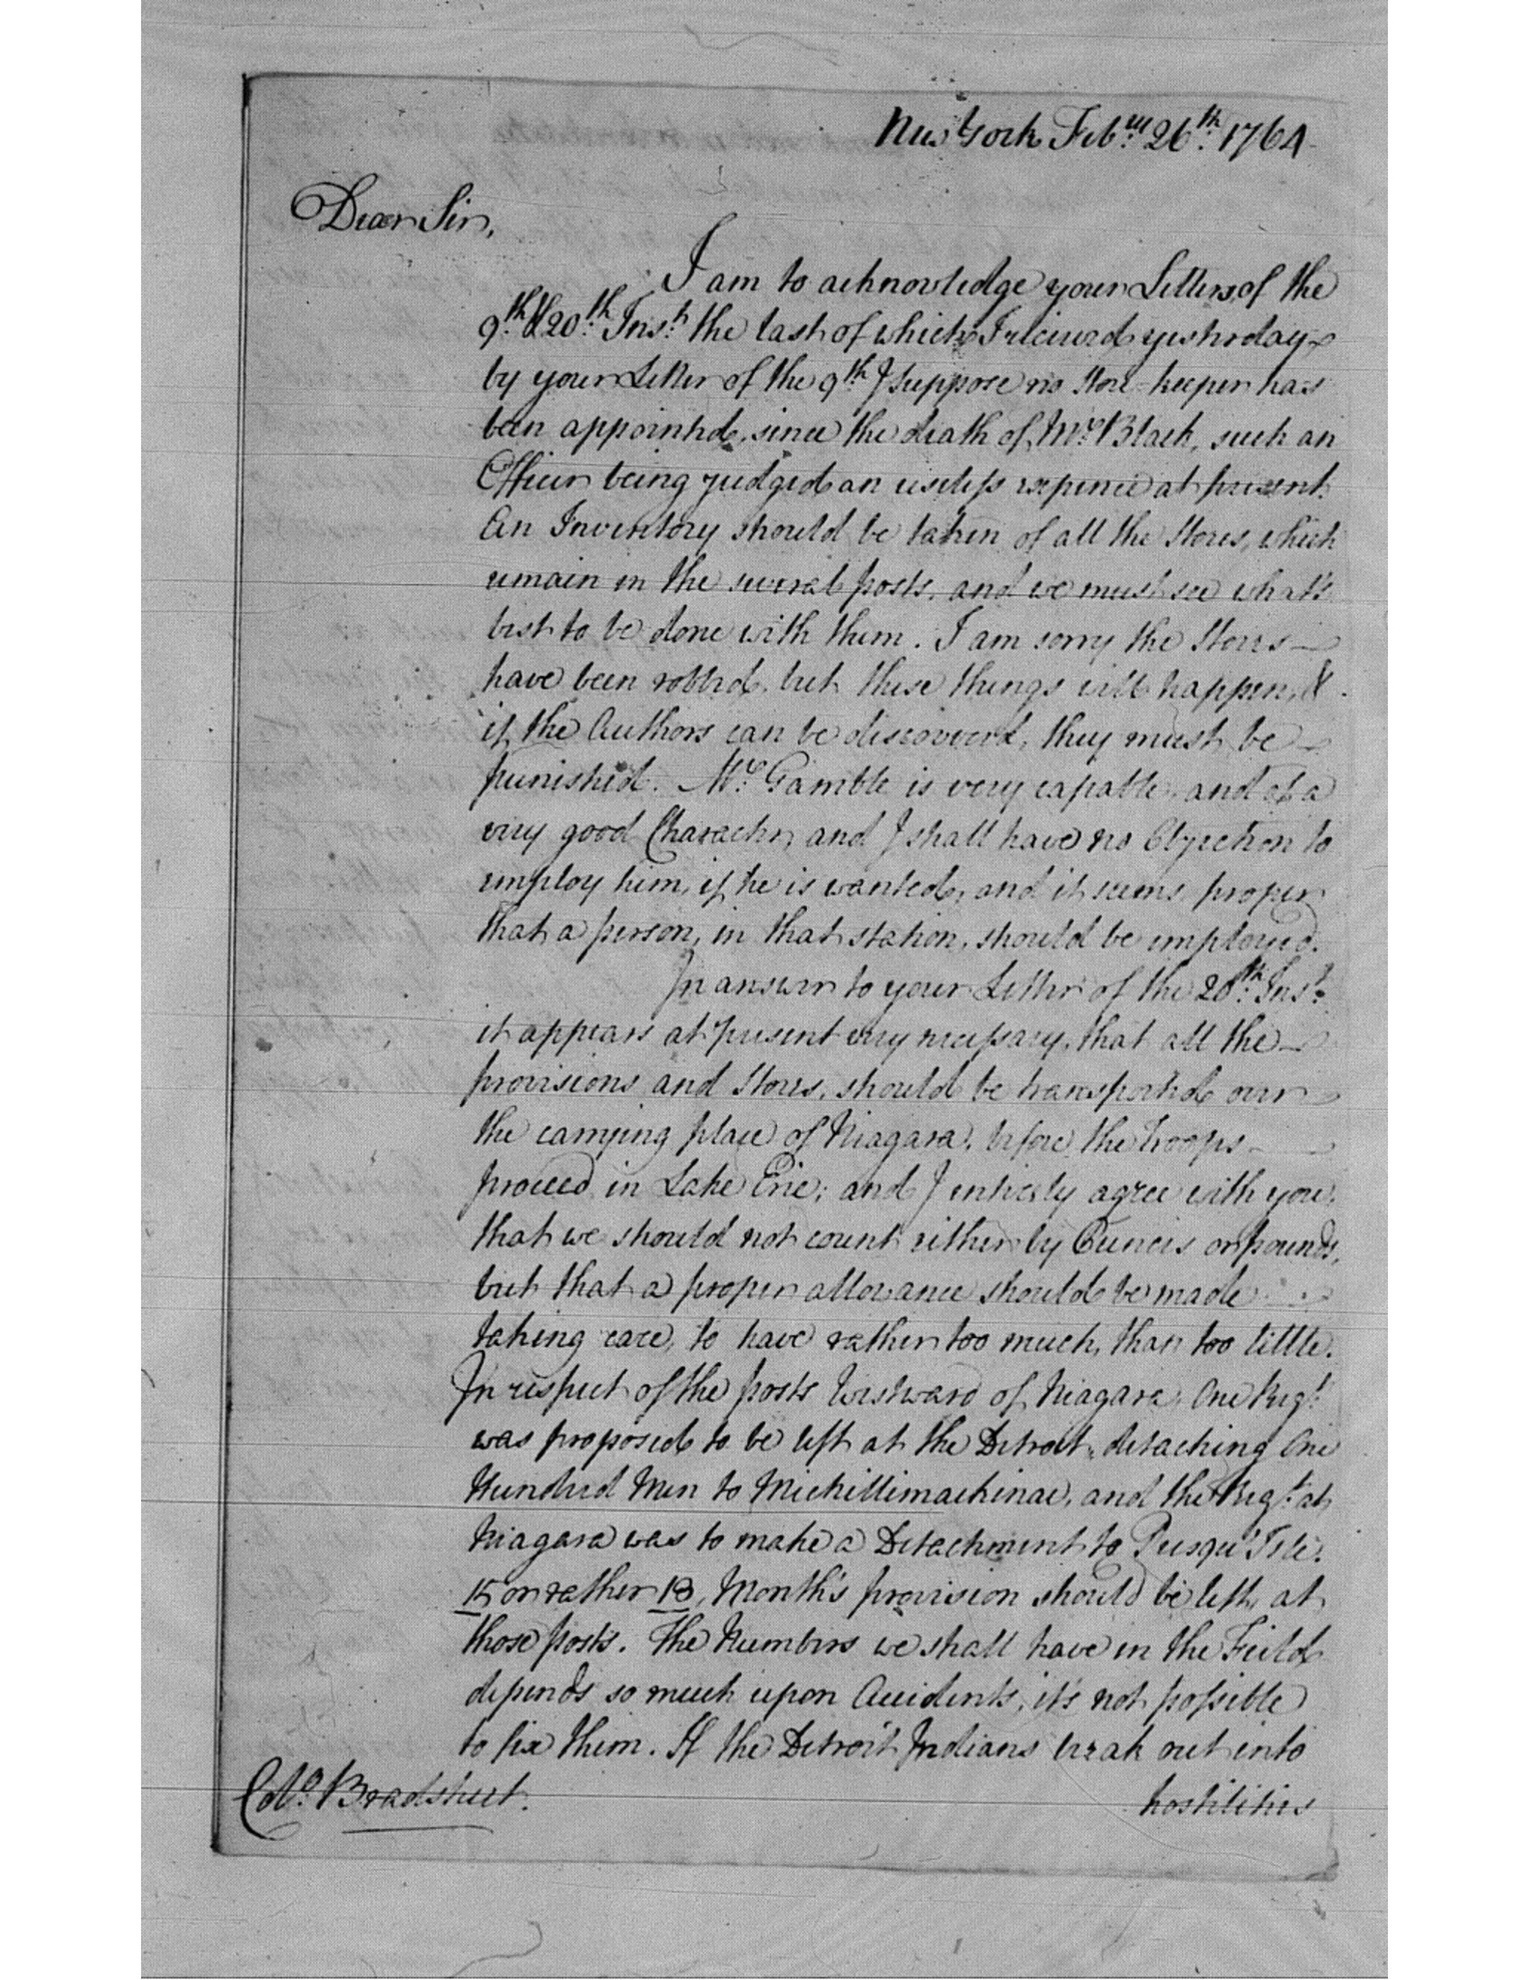 New York Feb.ry 26.th 1764
Dear Sir,
I am to acknowledge your Letters of the
9.th & 20.th Ins.t the last of which I received yesterday
by your Letter of the 9.th I suppose no Store-keeper has
been appointed, since the death of M.r Black, such an
Officer being judged an useless expence at present.
An Inventory should be taken of all the Stores, which
remain in the several posts, and we must see what's
best to be done with them. I am sorry the Stores
have been robbed, but these things will happen, &
if the Authors can be discovered, they must be
punished. M.r Gamble is very capable, and of a
very good Character, and I shall have no Objection to
employ him, if he is wanted, and it seems proper
that a person, in that station, should be employed.
In answer to your Letter of the 20.th Ins.t
it appears at present very necessary, that all the
provisions and Stores, should be transported over
the carrying place of Niagara, before the troops
proceed in Lake Erie; and I entirely agree with you,
that we should not count either by Ounces or pounds,
but that a proper allowance should be made
taking care, to have rather too much, than too little.
In respect of the posts Westward of Niagara, One Reg.t
was proposed to be left at the Detroit, detaching One
Hundred Men to Michillimackinac, and the Reg.t at
Niagara was to make a Detachment to Presqu' Isle.
15 or rather 18, Month's provision should be left, at
those posts. The Numbers we shall have in the Feild
depends so much upon Accidents, it's not possible
to fix them. If the Detroit Indians break out into
Col.o Bradstreet. hostilities